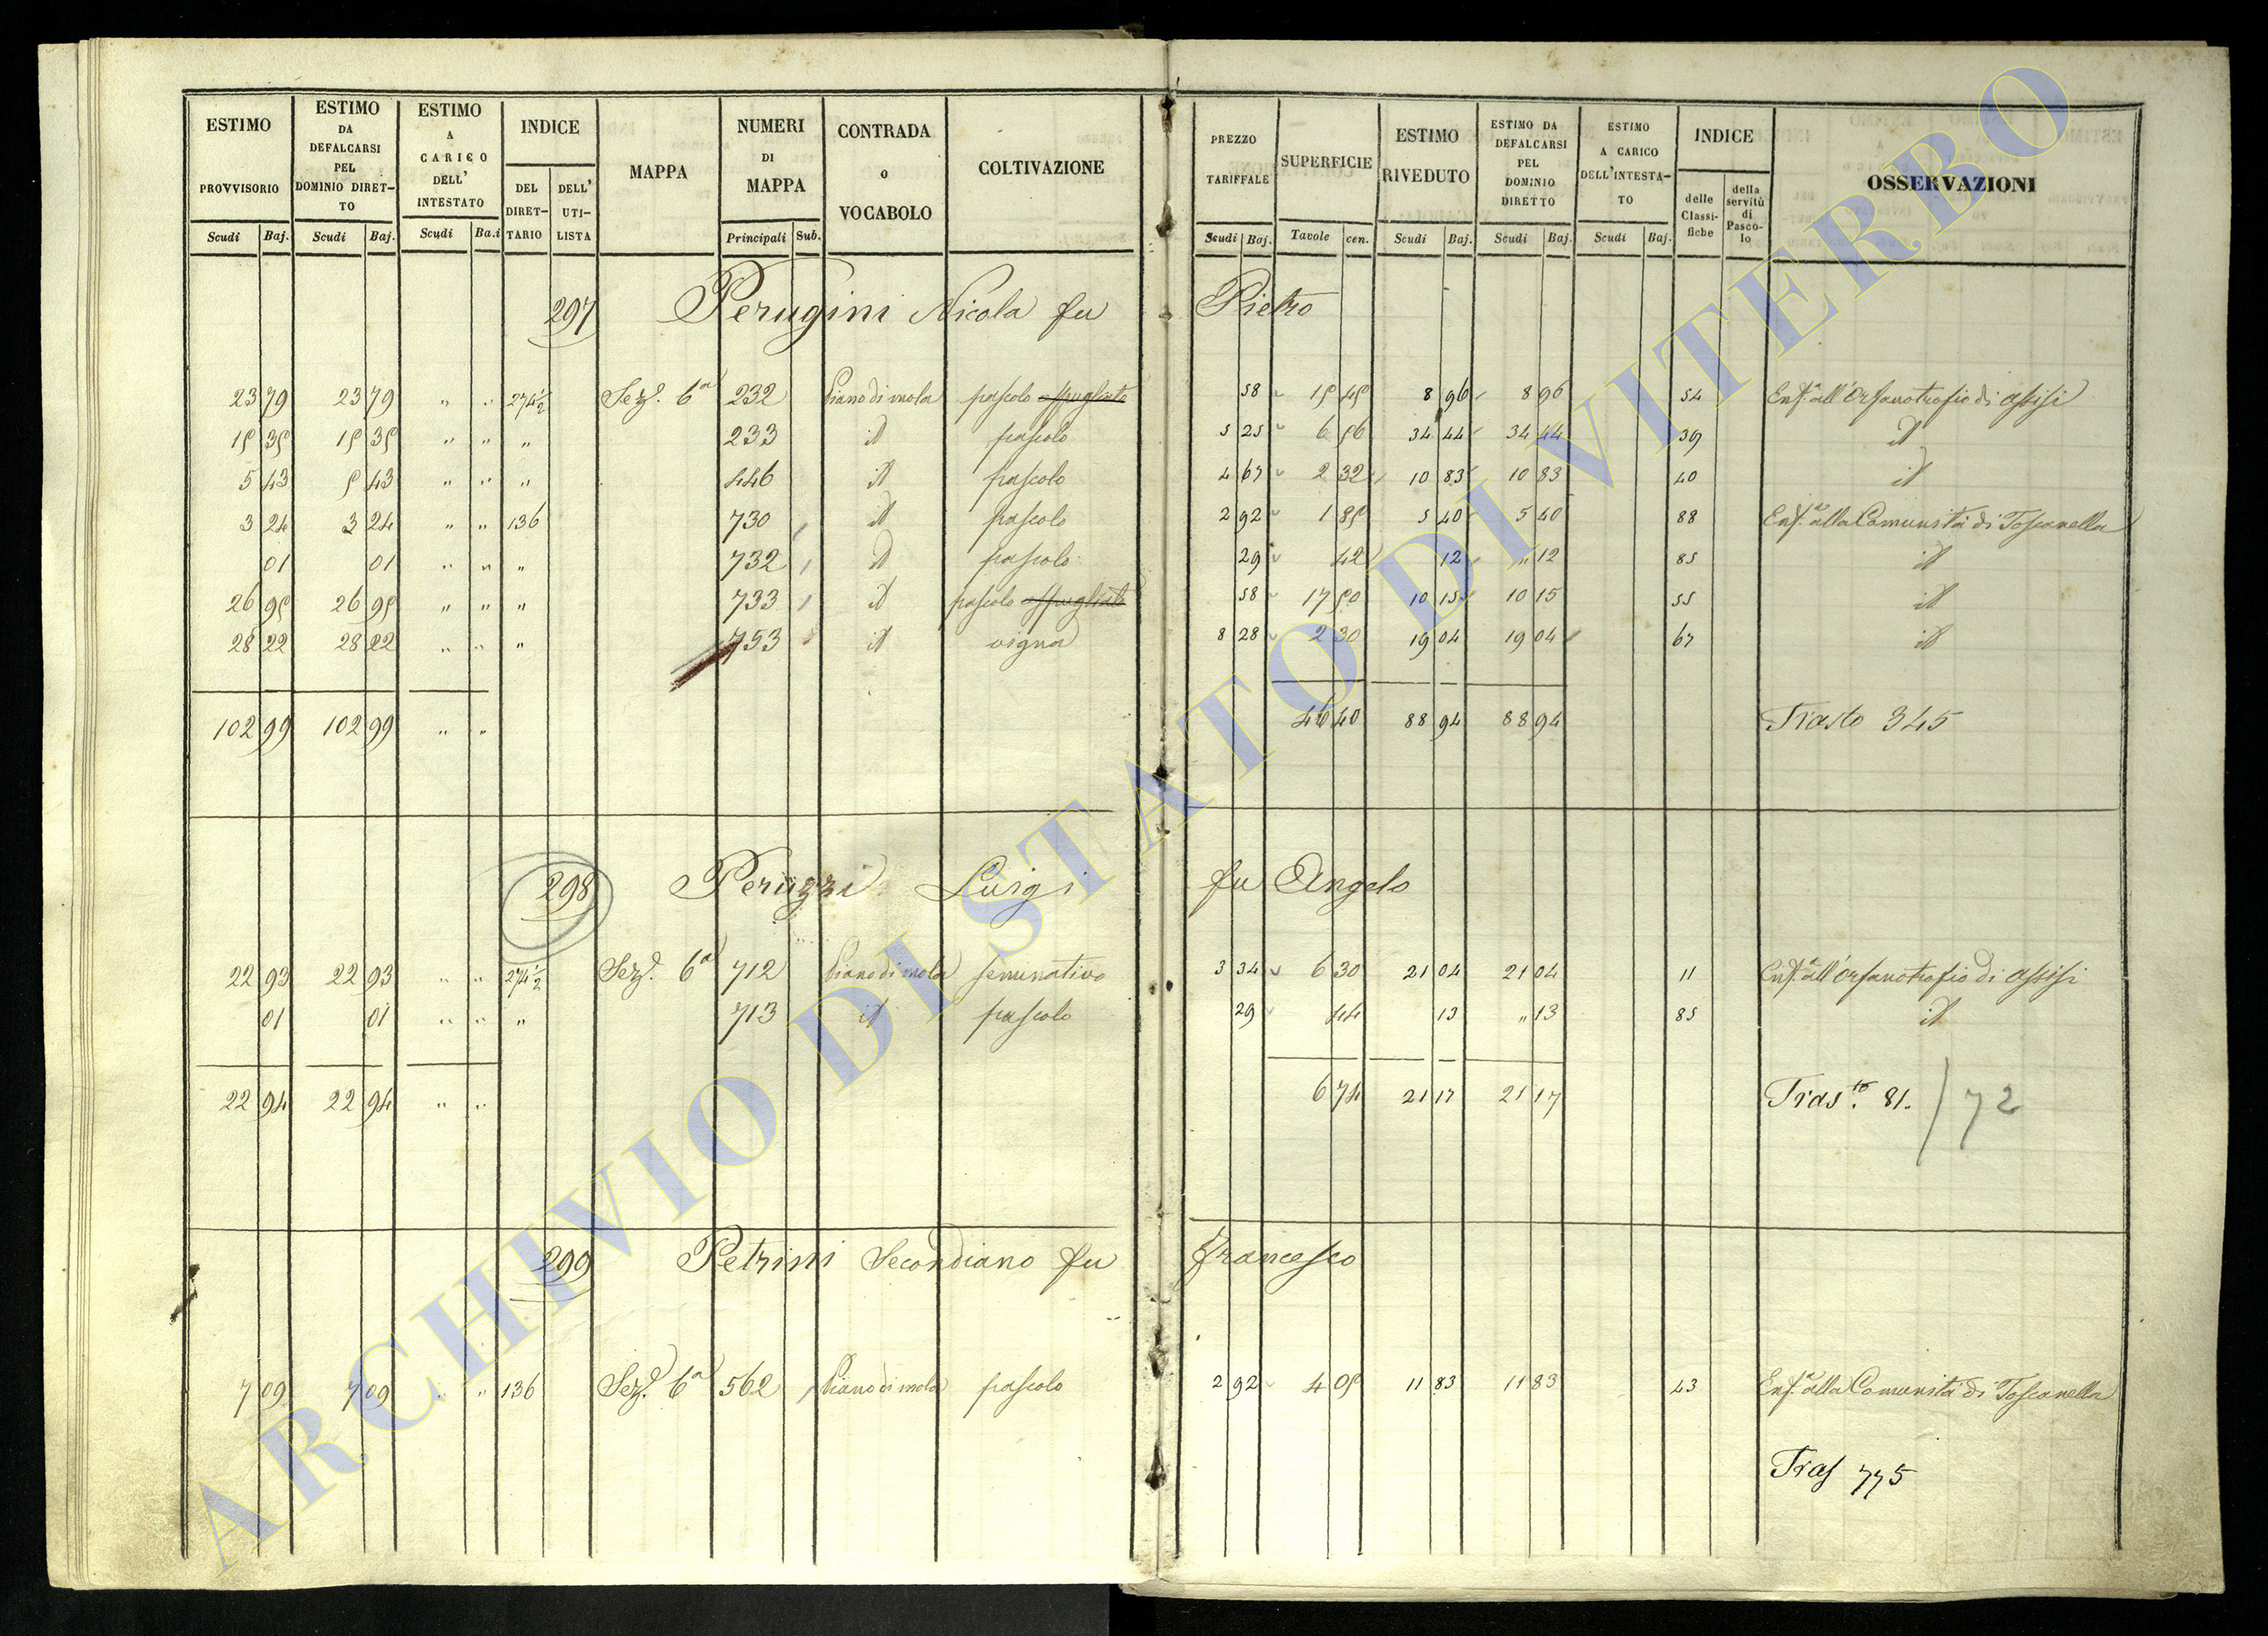 ESTIMO PROVVISORIO Scudi Baj.
ESTIMO DA DEFALCARSI PEL DOMINIO DIRET-TO Scudi Baj.
ESTIMO A CARICO DELL' INTESTATO Scudi Ba.i
INDICE DEL DIRET-TARIO DELL' UTI-LISTA
MAPPA
NUMERI DI MAPPA Principali Sub.
CONTRADA O VOCABOLO
COLTIVAZIONE
PREZZO TARIFFALE Scudi Baj.
SUPERFICIE Tavole cen.
ESTIMO RIVEDUTO Scudi Baj.
ESTIMO DA DEFALCARSI PEL DOMINIO DIRETTO Scudi Baj.
ESTIMO A CARICO DELL'INTESTA-TO Scudi Baj.
INDICE delle Classi-fiche della servitù di Pasco-lo
OSSERVAZIONI
297 Perugini Nicola fu Pietro
23 79 23 79 " " 274½ Sez.e 6a 232 Piano di mola pascolo 58 15 45 8 96 8 96 54 Enf.a all'Orfanotrofio di Assisi
15 35 15 35 " " " 233 id pascolo 5 25 6 56 34 44 34 44 39 id
5 43 5 43 " " " 446 id pascolo 4 67 2 32 10 83 10 83 40 id
3 24 3 24 " " 136 730 id pascolo 2 92 1 85 5 40 5 40 88 Enf.a alla Comunità di Toscanella
01 01 " " " 732 id pascolo 29 42 12 " 12 85 id
26 95 26 95 " " " 733 id pascolo 58 17 50 10 15 10 15 55 id
28 22 28 22 " " " 753 id vigna 8 28 2 30 19 04 19 04 67 id
102 99 102 99 " " 46 40 88 94 88 94 Trasto 345
298 Peruzzi Luigi fu Angelo
22 93 22 93 " " 274½ Sez.e 6a 712 Piano di mola seminativo 3 34 6 30 21 04 21 04 11 Enf.a all'Orfanotrofio di Assisi
01 01 " " " 713 id pascolo 29 44 13 " 13 85 id
22 94 22 94 " " 6 74 21 17 21 17 Tras.to 81. / 72
299 Petrini Secondiano fu Francesco
7 09 7 09 " " 136 Sez.e 6a 562 Piano di mola pascolo 2 92 4 05 11 83 11 83 43 Enf.a alla Comunità di Toscanella
Tras 775
ARCHIVIO DI STATO DI VITERBO